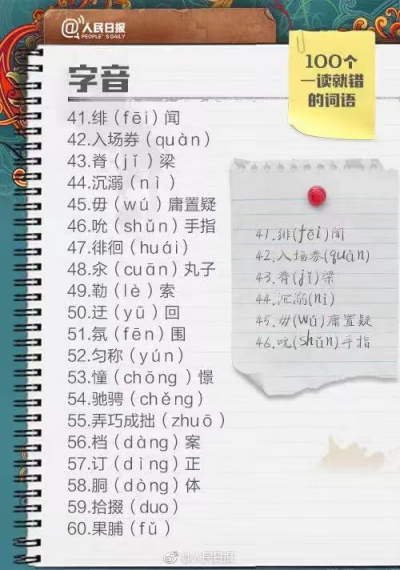 @人民日报
PEOPLE'S DAILY
100个
一读就错
的词语
字音
41.绯（fēi）闻
42.入场券（quàn）
43.脊（jǐ）梁
44.沉溺（nì）
45.毋（wú）庸置疑
46.吮（shǔn）手指
47.徘徊（huái）
48.氽（cuān）丸子
49.勒（lè）索
50.迂（yū）回
51.氛（fēn）围
52.匀称（yún）
53.憧（chōng）憬
54.驰骋（chěng）
55.弄巧成拙（zhuō）
56.档（dàng）案
57.订（dìng）正
58.胴（dòng）体
59.拾掇（duo）
60.果脯（fǔ）
41.绯(fēi)闻
42.入场券(quàn)
43.脊(jǐ)梁
44.沉溺(nì)
45.毋(wú)庸置疑
46.吮(shǔn)手指
@人民日报